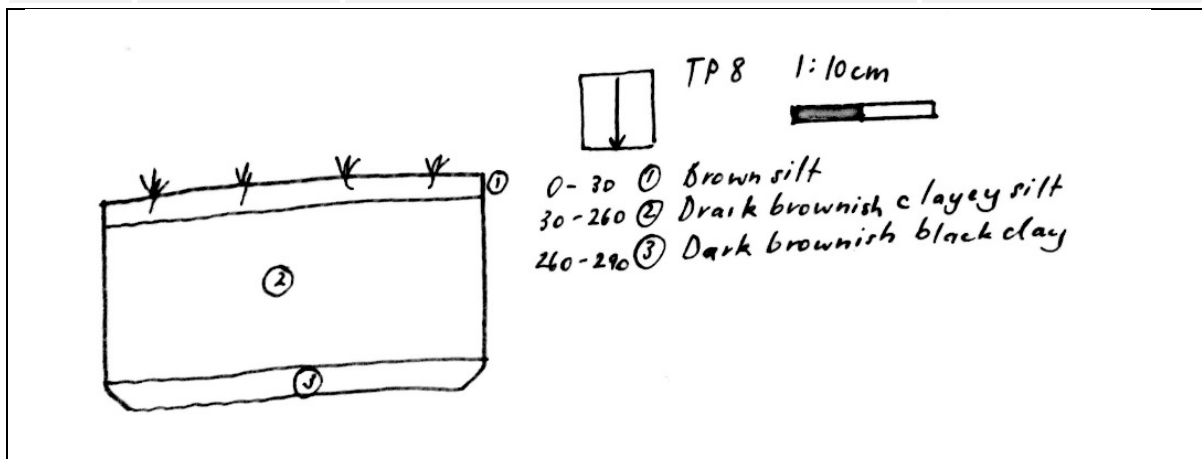 TP 8 1:10cm
① 0-30 ① Brown silt
30-260 ② Drark brownish clayey silt
260-290 ③ Dark brownish black clay
②
③